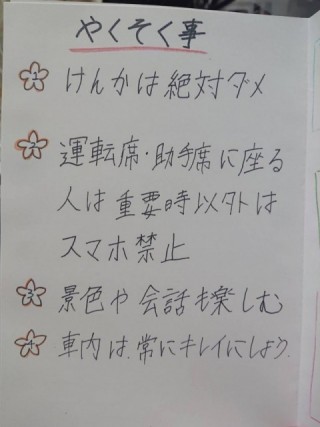 やくそく事
1 けんかは絶対ダメ
2 運転席・助手席に座る
人は重要時以外は
スマホ禁止
3 景色や会話も楽しむ
4 車内は、常にキレイにしよう。